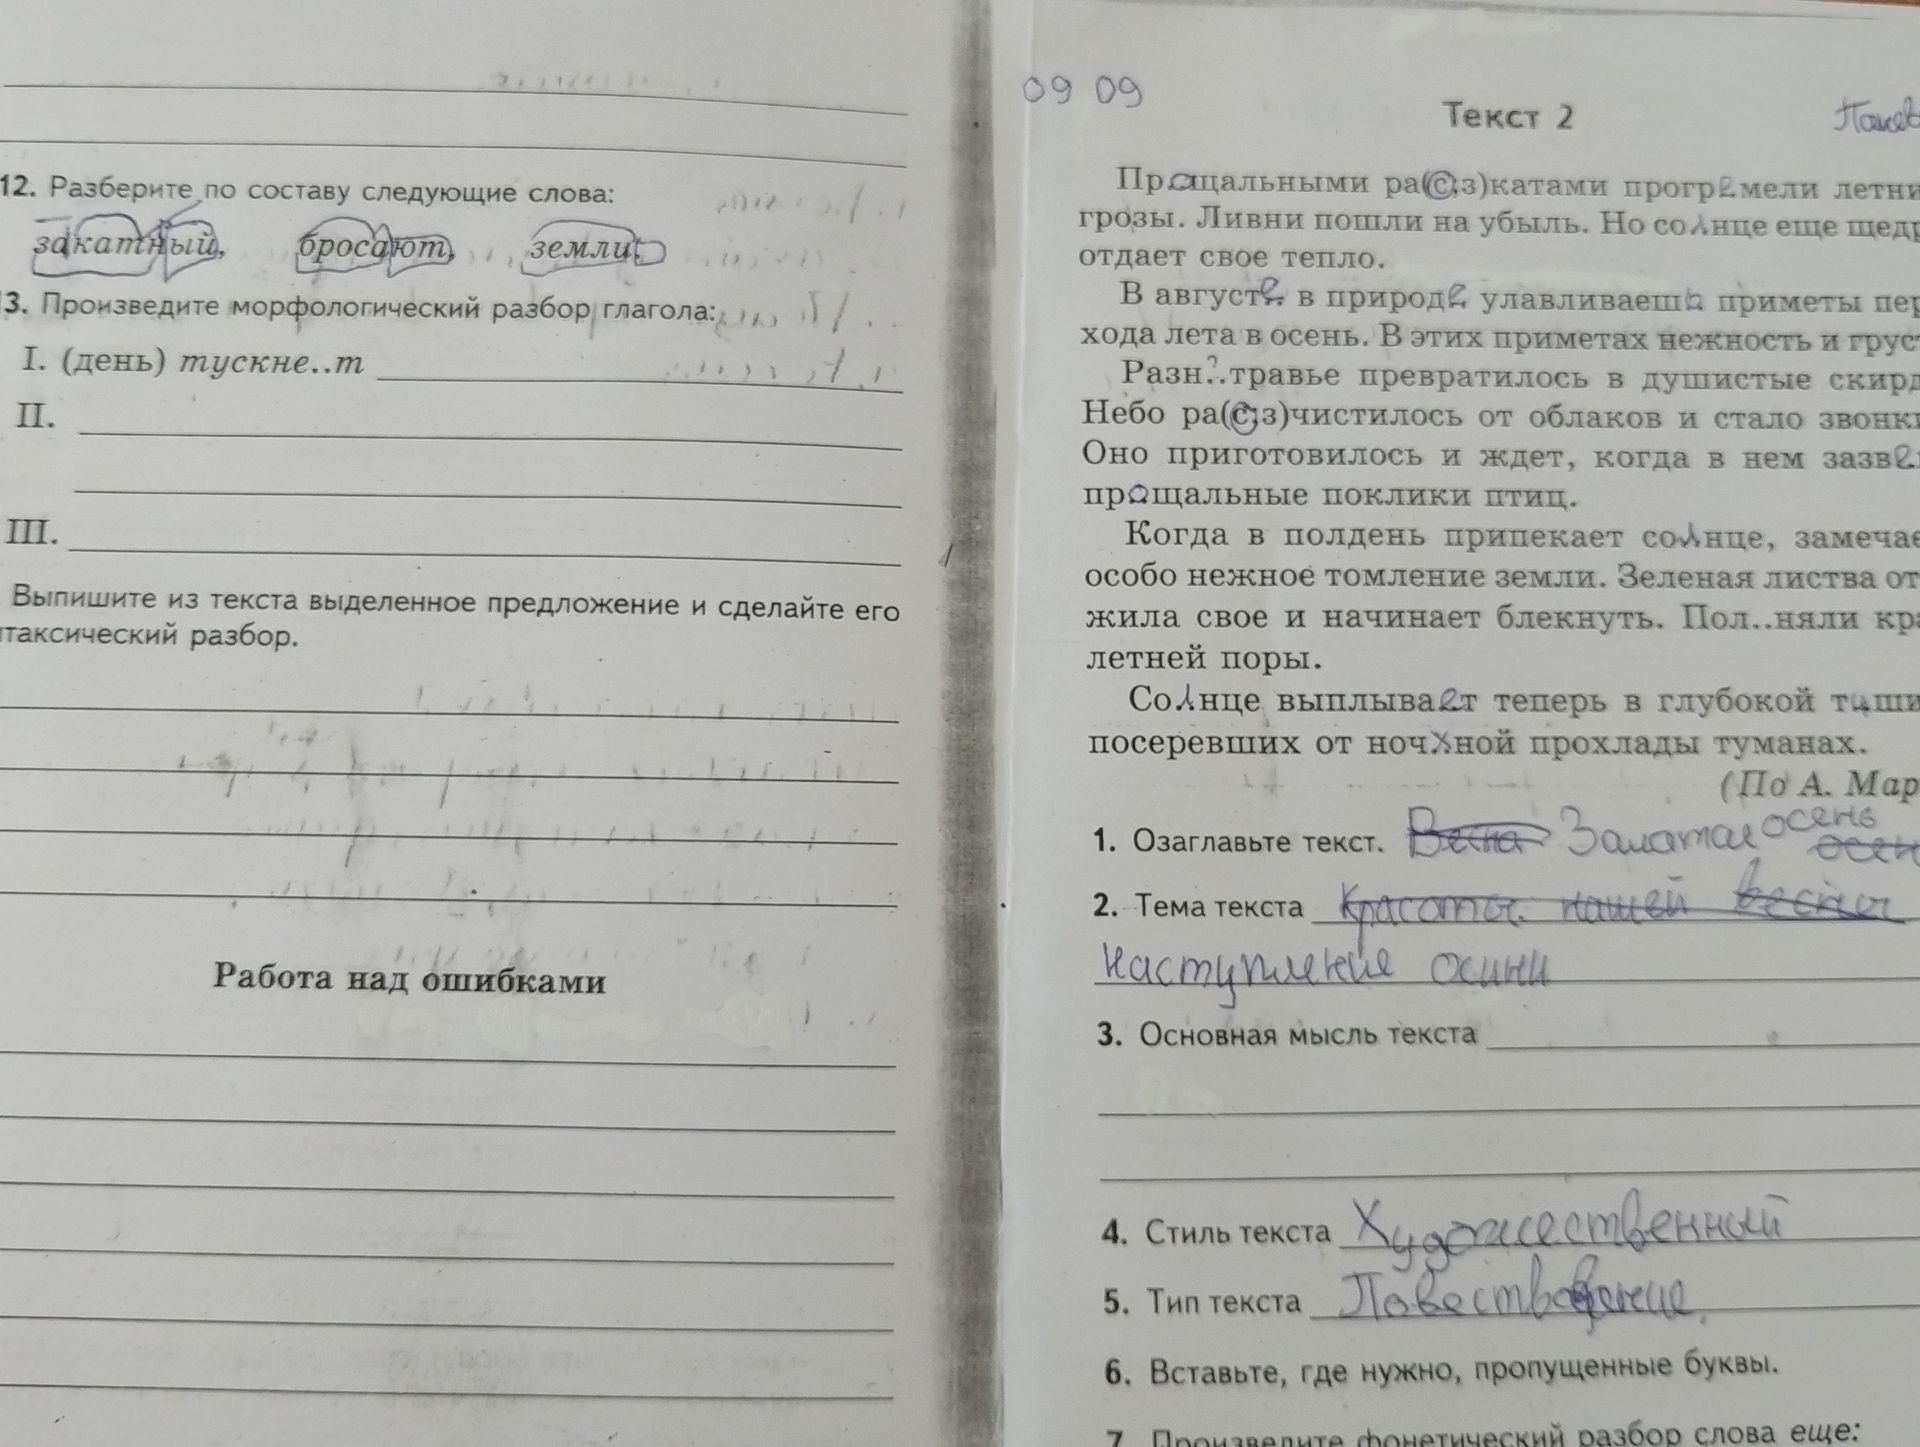 12. Разберите по составу следующие слова:
закатный, бросают, земли.
13. Произведите морфологический разбор глагола:
I. (день) тускне..т
II.
III.
Выпишите из текста выделенное предложение и сделайте его
нтаксический разбор.
Работа над ошибками
09 09
Текст 2
Прощальными ра(с,з)катами прогремели летни
грозы. Ливни пошли на убыль. Но солнце еще щедр
отдает свое тепло.
В августе в природе улавливаешь приметы пер
хода лета в осень. В этих приметах нежность и груст
Разн?.травье превратилось в душистые скирд
Небо ра(с,з)чистилось от облаков и стало звонки
Оно приготовилось и ждет, когда в нем зазве
прощальные поклики птиц.
Когда в полдень припекает солнце, замечае
особо нежное томление земли. Зеленая листва от
жила свое и начинает блекнуть. Пол..няли кра
летней поры.
Солнце выплывает теперь в глубокой тиши
посеревших от ночной прохлады туманах.
(По А. Мар
1. Озаглавьте текст. Весна Залатая осень осен
2. Тема текста Красоты нашей весны
Наступление осини
3. Основная мысль текста
4. Стиль текста Художественный
5. Тип текста Повествование.
6. Вставьте, где нужно, пропущенные буквы.
7. Произведите фонетический разбор слова еще: